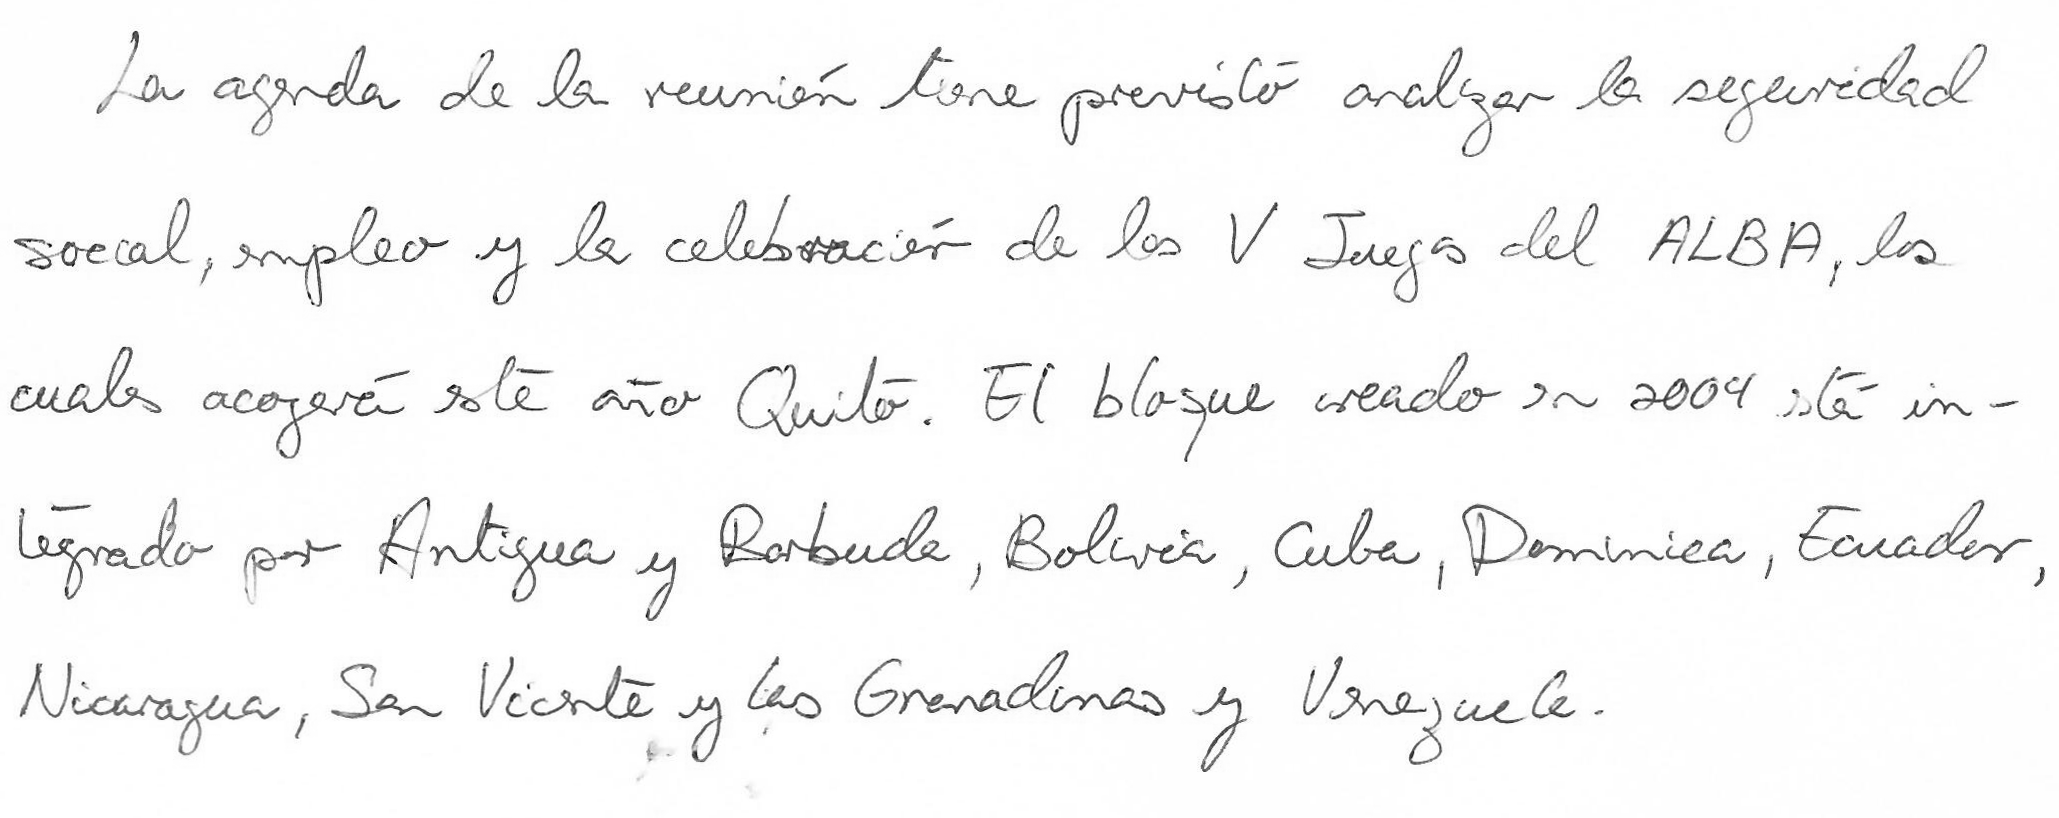 La agenda de la reunión tiene previsto analizar la seguridad
social, empleo y la celebración de los V Juegos del ALBA, los
cuales acogerá este año Quito. El bloque creado en 2004 está in-
tegrado por Antigua y Barbuda, Bolivia, Cuba, Dominica, Ecuador,
Nicaragua, San Vicente y las Granadinas y Venezuela.